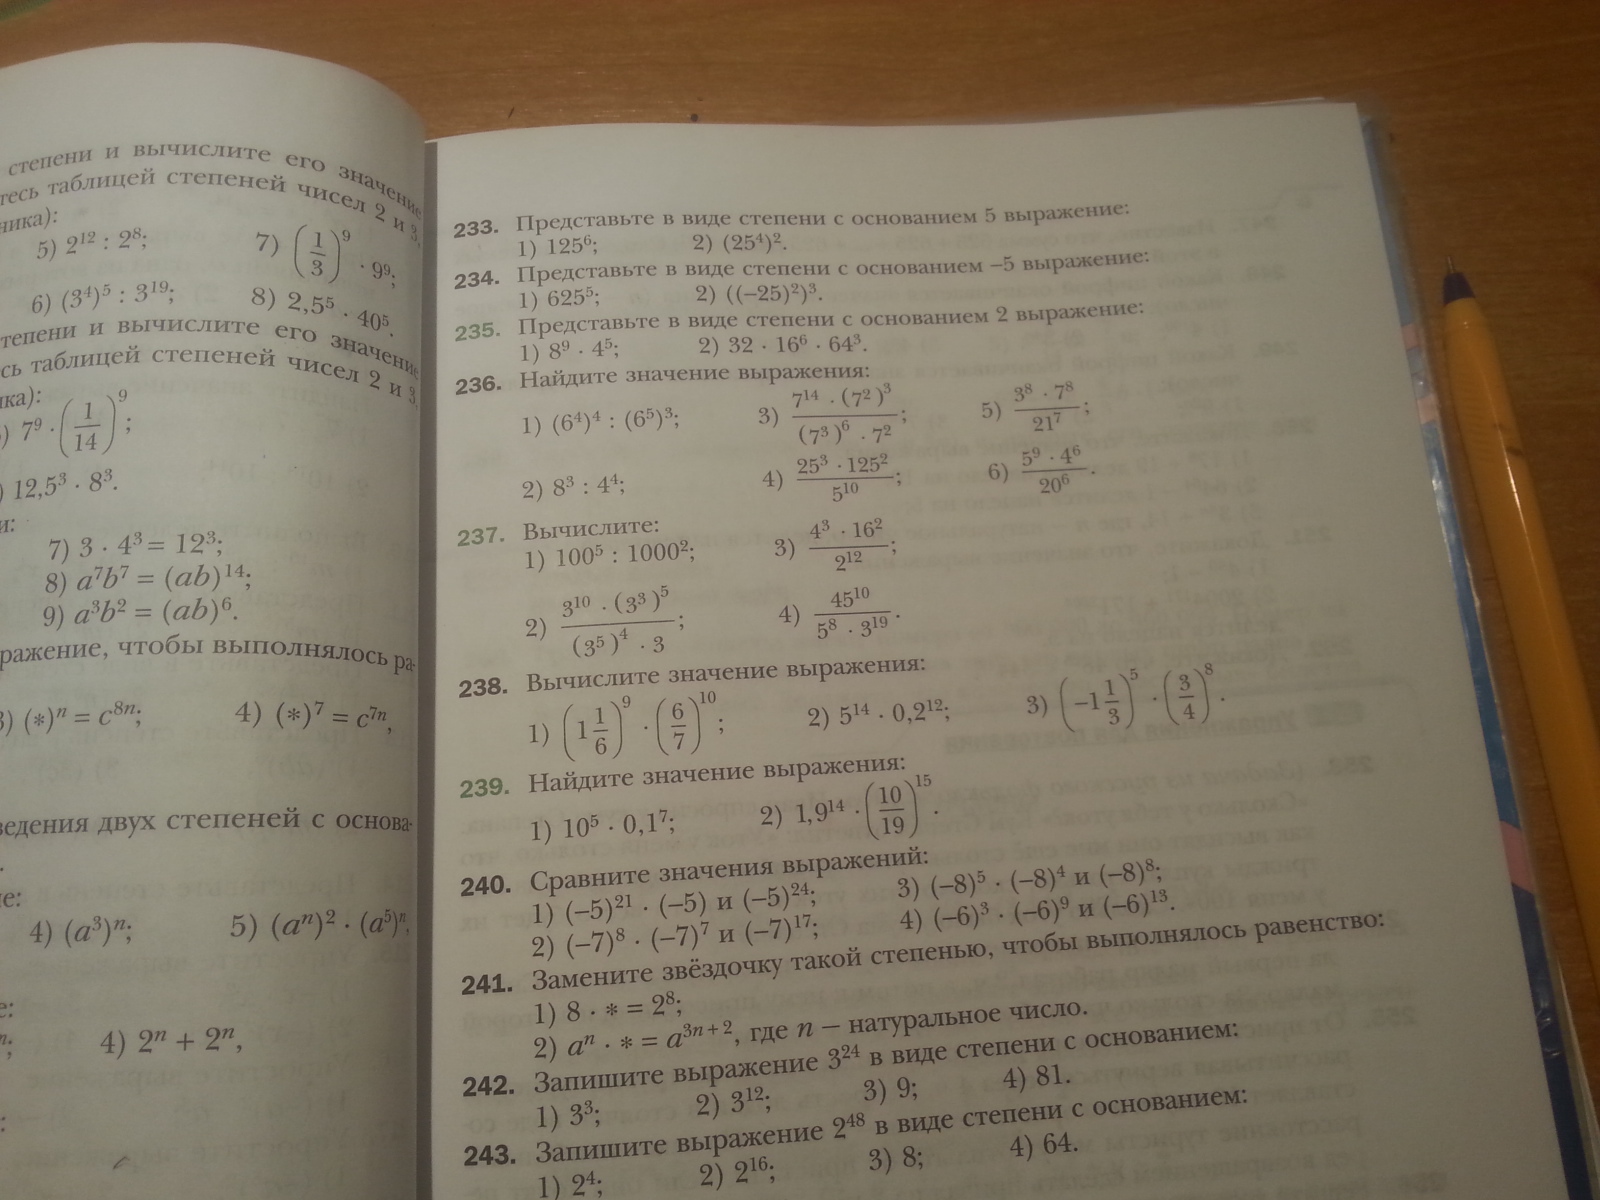 степени и вычислите его значение
тесь таблицей степеней чисел 2 и 3,
ника):
5) 2¹² : 2⁸; 7) (1/3)⁹ · 9⁹;
6) (3⁴)⁵ : 3¹⁹; 8) 2,5⁵ · 40⁵.
тепени и вычислите его значение
сь таблицей степеней чисел 2 и 3,
ка):
) 7⁹ · (1/14)⁹;
) 12,5³ · 8³.
и:
7) 3 · 4³ = 12³;
8) a⁷b⁷ = (ab)¹⁴;
9) a³b² = (ab)⁶.
ражение, чтобы выполнялось ра-
3) (*)ⁿ = c⁸ⁿ; 4) (*)⁷ = c⁷ⁿ,
ведения двух степеней с основа-
е:
4) (a³)ⁿ; 5) (aⁿ)² · (a⁵)ⁿ,
е:
ⁿ; 4) 2ⁿ + 2ⁿ,
:
233. Представьте в виде степени с основанием 5 выражение:
1) 125⁶; 2) (25⁴)².
234. Представьте в виде степени с основанием –5 выражение:
1) 625⁵; 2) ((–25)²)³.
235. Представьте в виде степени с основанием 2 выражение:
1) 8⁹ · 4⁵; 2) 32 · 16⁶ · 64³.
236. Найдите значение выражения:
1) (6⁴)⁴ : (6⁵)³; 3) (7¹⁴ · (7²)³)/((7³)⁶ · 7²); 5) (3⁸ · 7⁸)/21⁷;
2) 8³ : 4⁴; 4) (25³ · 125²)/5¹⁰; 6) (5⁹ · 4⁶)/20⁶.
237. Вычислите:
1) 100⁵ : 1000²; 3) (4³ · 16²)/2¹²;
2) (3¹⁰ · (3³)⁵)/((3⁵)⁴ · 3); 4) 45¹⁰/(5⁸ · 3¹⁹).
238. Вычислите значение выражения:
1) (1 1/6)⁹ · (6/7)¹⁰; 2) 5¹⁴ · 0,2¹²; 3) (–1 1/3)⁵ · (3/4)⁸.
239. Найдите значение выражения:
1) 10⁵ · 0,1⁷; 2) 1,9¹⁴ · (10/19)¹⁵.
240. Сравните значения выражений:
1) (–5)²¹ · (–5) и (–5)²⁴; 3) (–8)⁵ · (–8)⁴ и (–8)⁸;
2) (–7)⁸ · (–7)⁷ и (–7)¹⁷; 4) (–6)³ · (–6)⁹ и (–6)¹³.
241. Замените звёздочку такой степенью, чтобы выполнялось равенство:
1) 8 · * = 2⁸;
2) aⁿ · * = a³ⁿ⁺², где n – натуральное число.
242. Запишите выражение 3²⁴ в виде степени с основанием:
1) 3³; 2) 3¹²; 3) 9; 4) 81.
243. Запишите выражение 2⁴⁸ в виде степени с основанием:
1) 2⁴; 2) 2¹⁶; 3) 8; 4) 64.